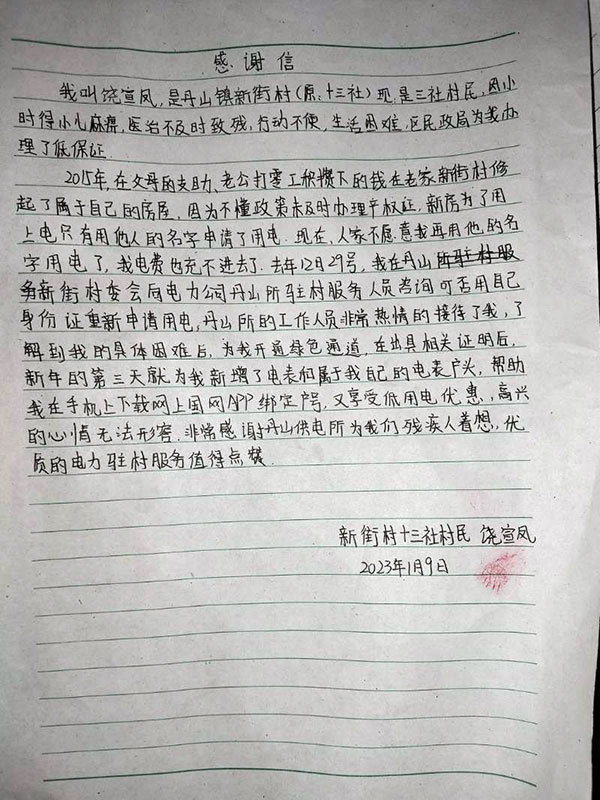 感谢信
我叫饶宣凤,是丹山镇新街村(原:十三社)现是三社村民,因小
时得小儿麻痹,医治不及时致残,行动不便,生活困难,区民政局为我办
理了低保证.
2015年,在父母的支助、老公打零工积攒下的钱在老家新街村修
起了属于自己的房屋,因为不懂政策未及时办理产权证,新房为了用
上电只有用他人的名字申请了用电.现在,人家不愿意我再用他的名
字用电了,我电费也充不进去了.去年12月29号,我在丹山所驻村服
务新街村委会向电力公司丹山所驻村服务人员咨询可否用自己
身份证重新申请用电,丹山所的工作人员非常热情的接待了我,了
解到我的具体困难后,为我开通绿色通道,在出具相关证明后,
新年的第三天就为我新增了电表和属于我自己的电表户头,帮助
我在手机上下载网上国网APP绑定户号,又享受低用电优惠,高兴
的心情无法形容.非常感谢丹山供电所为我们残疾人着想,优
质的电力驻村服务值得点赞.
新街村十三社村民 饶宣凤
2023年1月9日